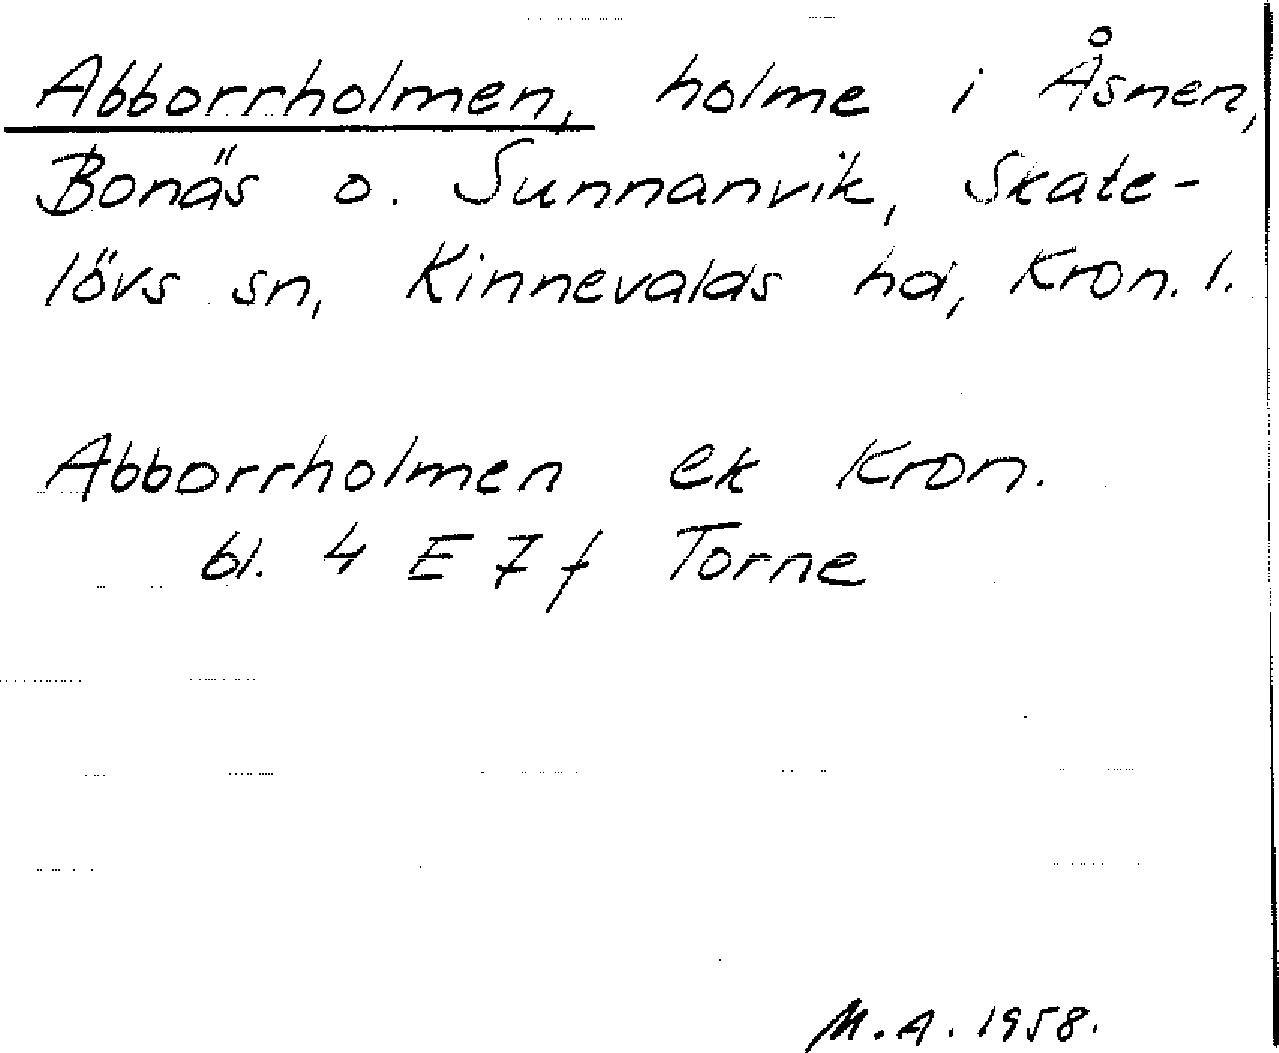 Abborrholmen, holme i Åsnen,
Bonäs o. Sunnanvik, Skate-
lövs sn, Kinnevalds hd, Kron. l.
Abborrholmen ek Kron.
bl. 4 E 7 f Torne
M.A. 1958.